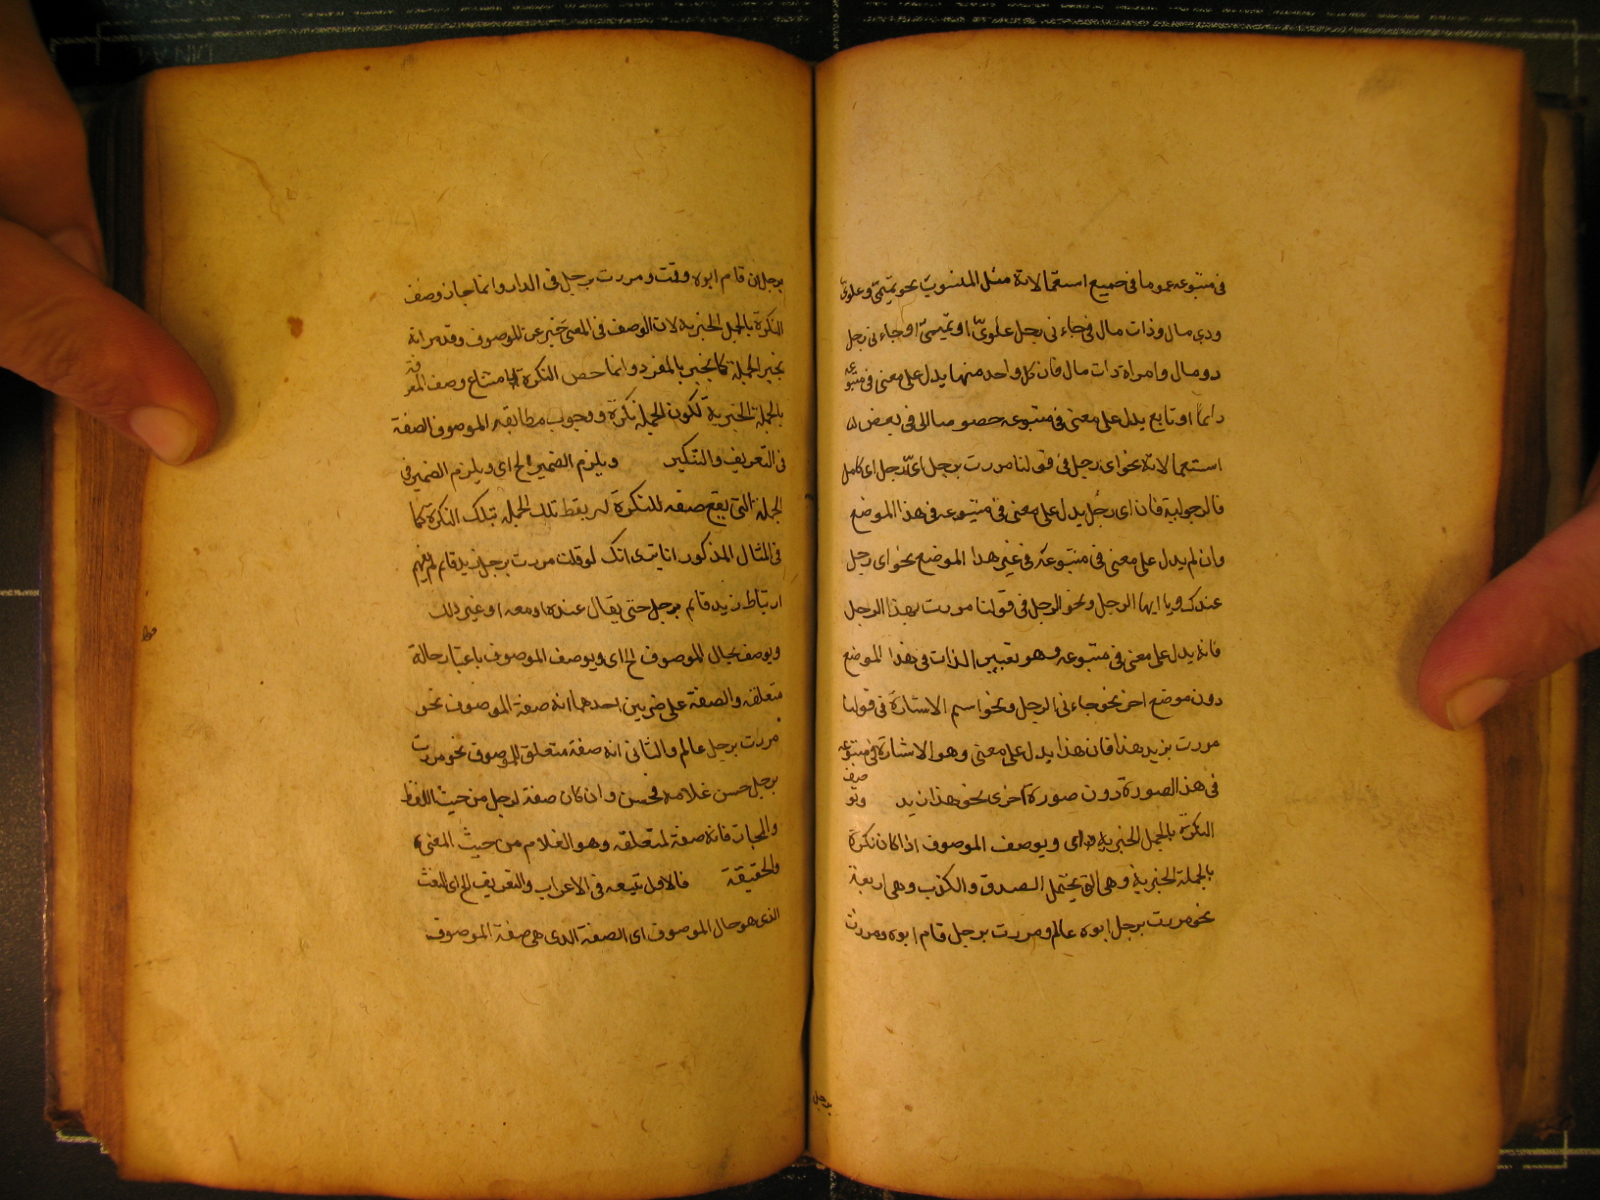 فى متبوعه عموما فى جميع استعمالاته مثل المنسوب نحو تميمىّ وعلوىّ
وذى مال وذات مال فى جاءنى رجل علوىّ او تميمىّ او جاءنى رجل
ذو مال وامراة ذات مال فان كل واحد منها يدل على معنى فى متبوعه
دائما او تابع يدل على معنى فى متبوعه خصوصا اى فى بعض
استعمالاته نحو اى رجل فى قولنا مررت برجل اىّ رجل اى كامل
فى الرجولية فان اى رجل يدل على معنى فى متبوعه فى هذا الموضع
وان لم يدل على معنى فى متبوعه فى غير هذا الموضع نحو اى رجل
عندك ويا ايها الرجل ونحو الرجل فى قولنا مررت بهذا الرجل
فانه يدل على معنى فى متبوعه وهو تعيين الذات فى هذا الموضع
دون موضع اخر نحو جاءنى الرجل ونحو اسم الاشارة فى قولنا
مررت بزيد هذا فان هذا يدل على معنى وهو الاشارة فى متبوعه
فى هذ الصورة دون صورة اخرى نحو هذا زيد وتوصف
النكرة بالجمل الخبرية اى ويوصف الموصوف اذا كان نكرة
بالجملة الخبرية وهى التى يحتمل الصدق والكذب وهى اربعة
نحو مررت برجل ابوه عالم ومررت برجل قام ابوه ومررت
برجل
برجل ان قام ابوه وقت ومررت برجل فى الدار وانما جاز وصف
النكرة بالجمل الخبرية لان الوصف فى المعنى خبر عن الموصوف وقد مر انه
يخبر الجملة كما يخبر بالمفرد وانما خص النكرة لامتناع وصف المعرفة
بالجملة الخبرية لكون الجملة نكرة ووجوب مطابقة الموصوف الصفة
فى التعريف والتنكير ويلزم الضمير الخ اى ويلزم الضمير فى
الجملة التى يقع صفة للنكرة ليربط تلك الجملة بتلك النكرة كما
فى المثال المذكور الا يرى انك لو قلت مررت برجل زيد قائم لم يفهم
ارتباط زيد قائم برجل حتى يقال عنده او معه او غير ذلك
ويوصف بحال الموصوف الخ اى ويوصف الموصوف باعتبار حالة
متعلقه والصفة على ضربين احدهما انه صفة الموصوف نحو
مررت برجل عالم والثانى انه صفة متعلق الموصوف نحو مررت
برجل حسن غلامه فحسن وان كان صفة لرجل من حيث اللفظ
والمجاز فانه صفة لمتعلقه وهو الغلام من حيث المعنى
والحقيقة فالاول يتبعه فى الاعراب والتعريف الخ اى النعت
الذى هو حال الموصوف اى الصفة الذى هى صفة الموصوف